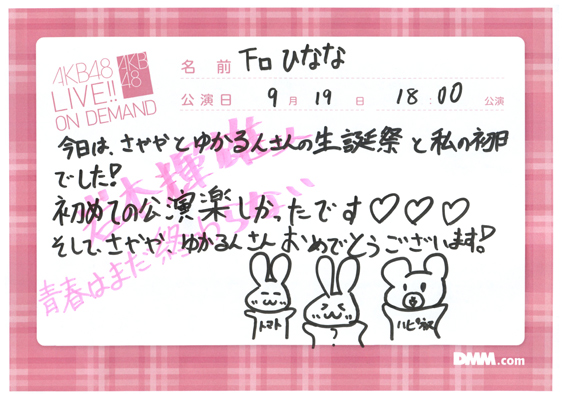 AKB48
LIVE!!
ON DEMAND
AKB
48
名前 下口ひなな
公演日 9月19日 18:00 公演
今日は、さややとゆかるんさんの生誕祭と私の初日
でした!
初めての公演楽しかったです♡♡♡
そして、さやや、ゆかるんさんおめでとうございます!
青春はまだ終わらない
トマト
?
DMM.com